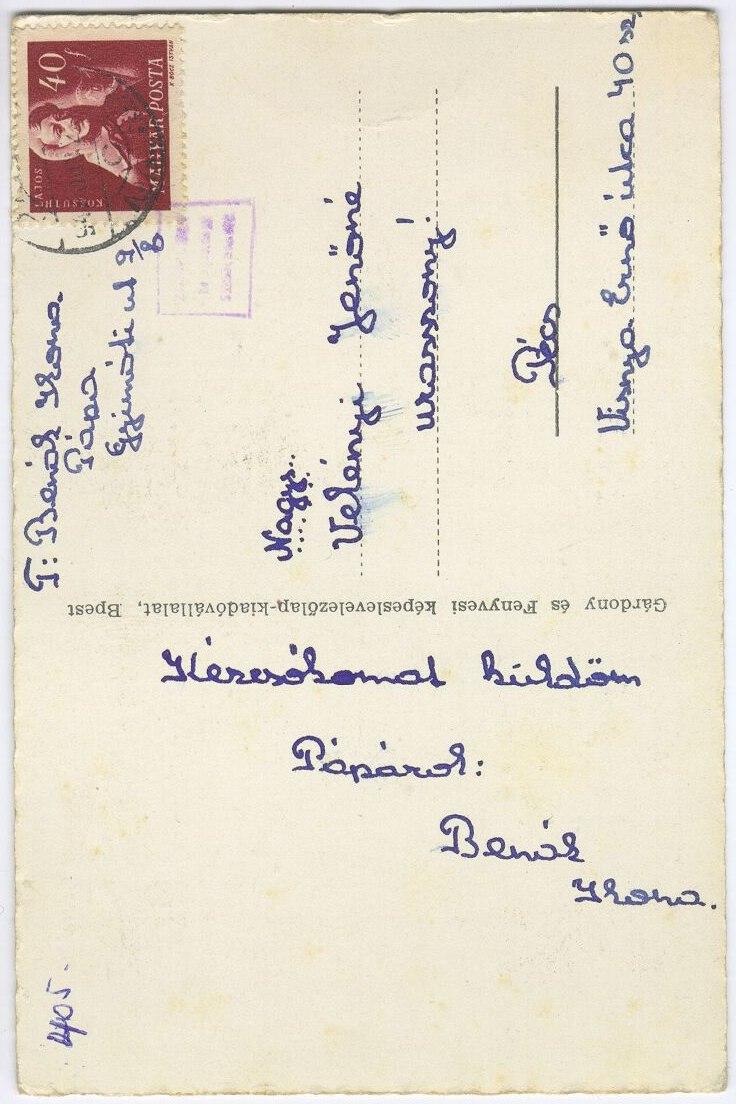 40f
MAGYAR POSTA
KOSSUTH LAJOS
F: Benák Ilona
Pápa
Gyimóti ut
Nagys.
Velényi Jenőné
urasszony.
Pécs
Visnya Ernő utca 40 sz.
Gárdony és Fenyvesi képeslevelezőlap-kiadóvállalat, Bpest
Kézcsókomat küldöm
Pápáról:
Benák
Ilona.
405.